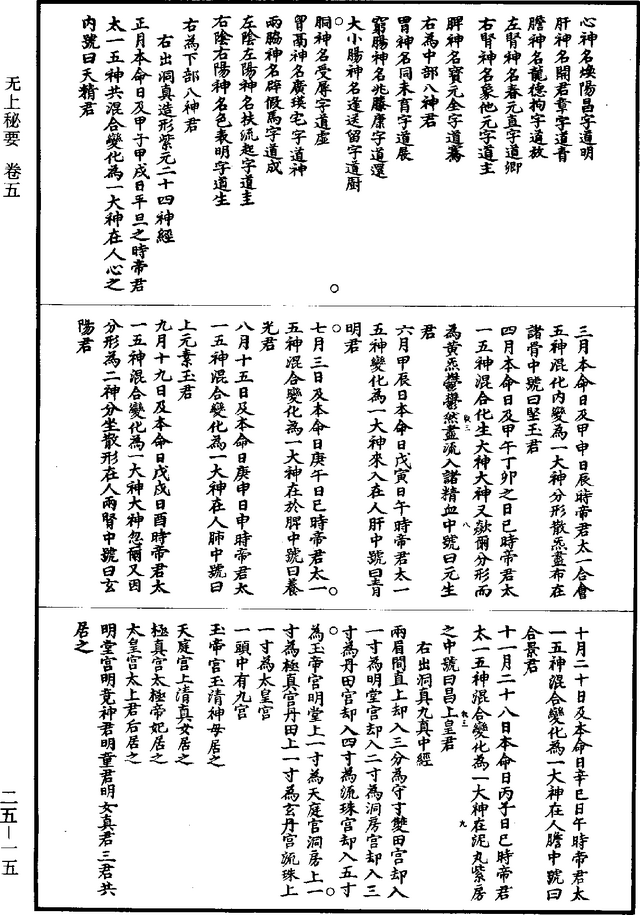 无上秘要 卷五
心神名煥陽昌字道明
肝神名開君章字道青
膽神名龍德拘字道放
左腎神名春元直字道卿
右腎神名象他元字道主
脾神名寶元全字道騫
右為中部八神君
胃神名同未育字道展
窮腸神名兆滕康字道還
大小腸神名蓬送留字道厨
○
胴神名受辱字道虛
胷鬲神名廣瑛宅字道神
兩脇神名辟假馬字道成
左陰左陽神名扶流起字道圭
右陰右陽神名包表明字道生
右為下部八神君
右出洞真造形紫元二十四神經
正月本命日及甲子甲戌日平旦之時帝君
太一五神共混合變化為一大神在人心之
內號曰天精君
○
三月本命日及甲申日辰時帝君太一合會
五神混化內變為一大神分形散炁盡布在
諸骨中號曰堅玉君
四月本命日及甲午丁卯之日巳時帝君太
一五神混合化生大神大神又欻爾分形而
為黃炁欝欝然盡流入諸精血中號曰元生
君
六月甲辰日本命日戊寅日午時帝君太一
五神變化為一大神來入在人肝中號曰青
明君
○
七月三日及本命日庚午日巳時帝君太一
五神混合變化為一大神在於脾中號曰養
光君
八月十五日及本命日庚申日申時帝君太
一五神混合變化為一大神在人肺中號曰
上元素玉君
九月十九日及本命日戊戌日酉時帝君太
一五神混合變化為一大神大神忽爾又因
分形為二神分坐散形在人兩腎中號曰玄
陽君
○
十月二十日及本命日辛巳日午時帝君太
一五神混合變化為一大神在人膽中號曰
合景君
十一月二十八日本命日丙子日巳時帝君
太一五神混合變化為一大神在泥丸紫房
之中號曰昌上皇君
右出洞真九真中經
兩眉間直上却入三分為守寸雙田宮却入
一寸為明堂宮却入二寸為洞房宮却入三
寸為丹田宮却入四寸為流珠宮却入五寸
○
為玉帝宮明堂上一寸為天庭宮洞房上一
寸為極真宮丹田上一寸為玄丹宮流珠上
一寸為太皇宮
一頭中有九宮
玉帝宮玉清神母居之
天庭宮上清真女居之
極真宮太極帝妃居之
太皇宮太上君后居之
明堂宮明竟神君明童君明女真君三君共
居之
○
二五—一五